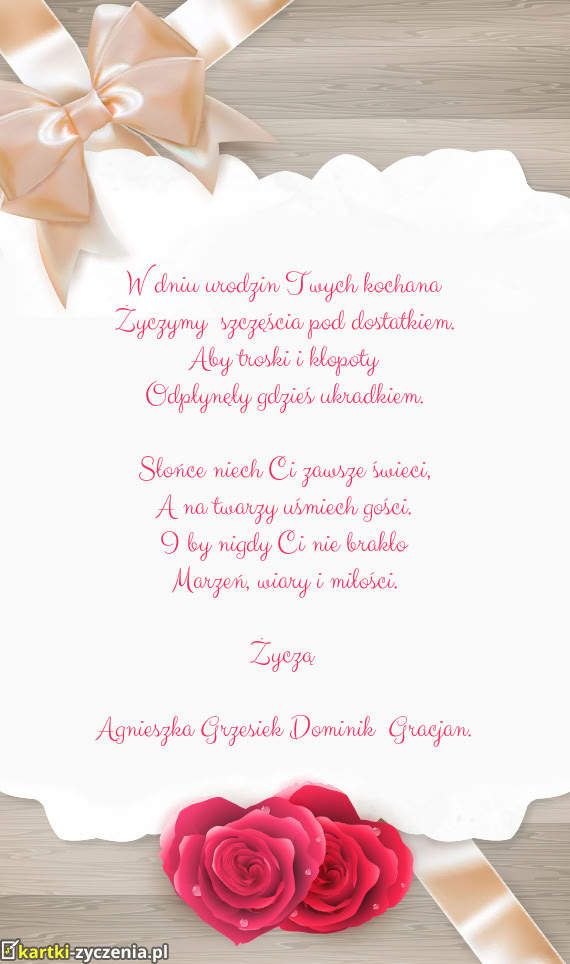 W dniu urodzin Twych kochana
Życzymy szczęścia pod dostatkiem.
Aby troski i kłopoty
Odpłynęły gdzieś ukradkiem.
Słońce niech Ci zawsze świeci,
A na twarzy uśmiech gości.
I by nigdy Ci nie brakło
Marzeń, wiary i miłości.
Życzą
Agnieszka Grzesiek Dominik Gracjan.
kartki-zyczenia.pl